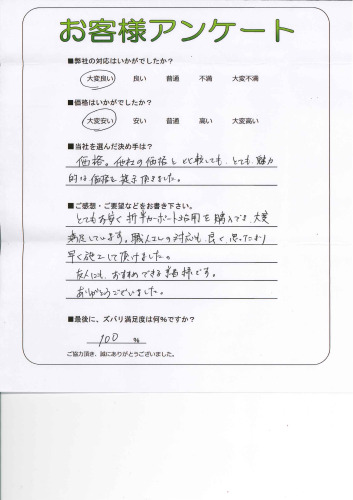 お客様アンケート
■弊社の対応はいかがでしたか?
大変良い 良い 普通 不満 大変不満
■価格はいかがでしたか?
大変安い 安い 普通 高い 大変高い
■当社を選んだ決め手は?
価格。他社の価格と比較しても、とても魅力
的な価格を提示頂きました。
■ご感想・ご要望などをお書き下さい。
とてもお安く折半カーポート3台用を購入でき、大変
満足しています。職人さんの対応も良く思ったより
早く施工して頂けました。
友人にも、おすすめできる業者様です。
ありがとうございました。
■最後に、ズバリ満足度は何%ですか?
100 %
ご協力頂き、誠にありがとうございました。